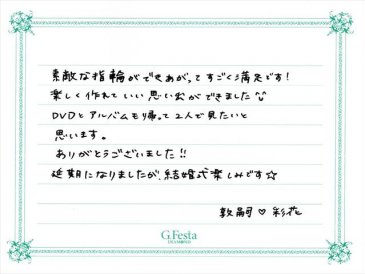 素敵な指輪ができあがってすごく満足です!
楽しく作れていい思い出ができました^^
DVDとアルバムもり帰って2人で見たいと
思います。
ありがとうございました!!
延期になりましたが、結婚式楽しみです☆
敦嗣♡彩花
G.Festa
DIAMOND